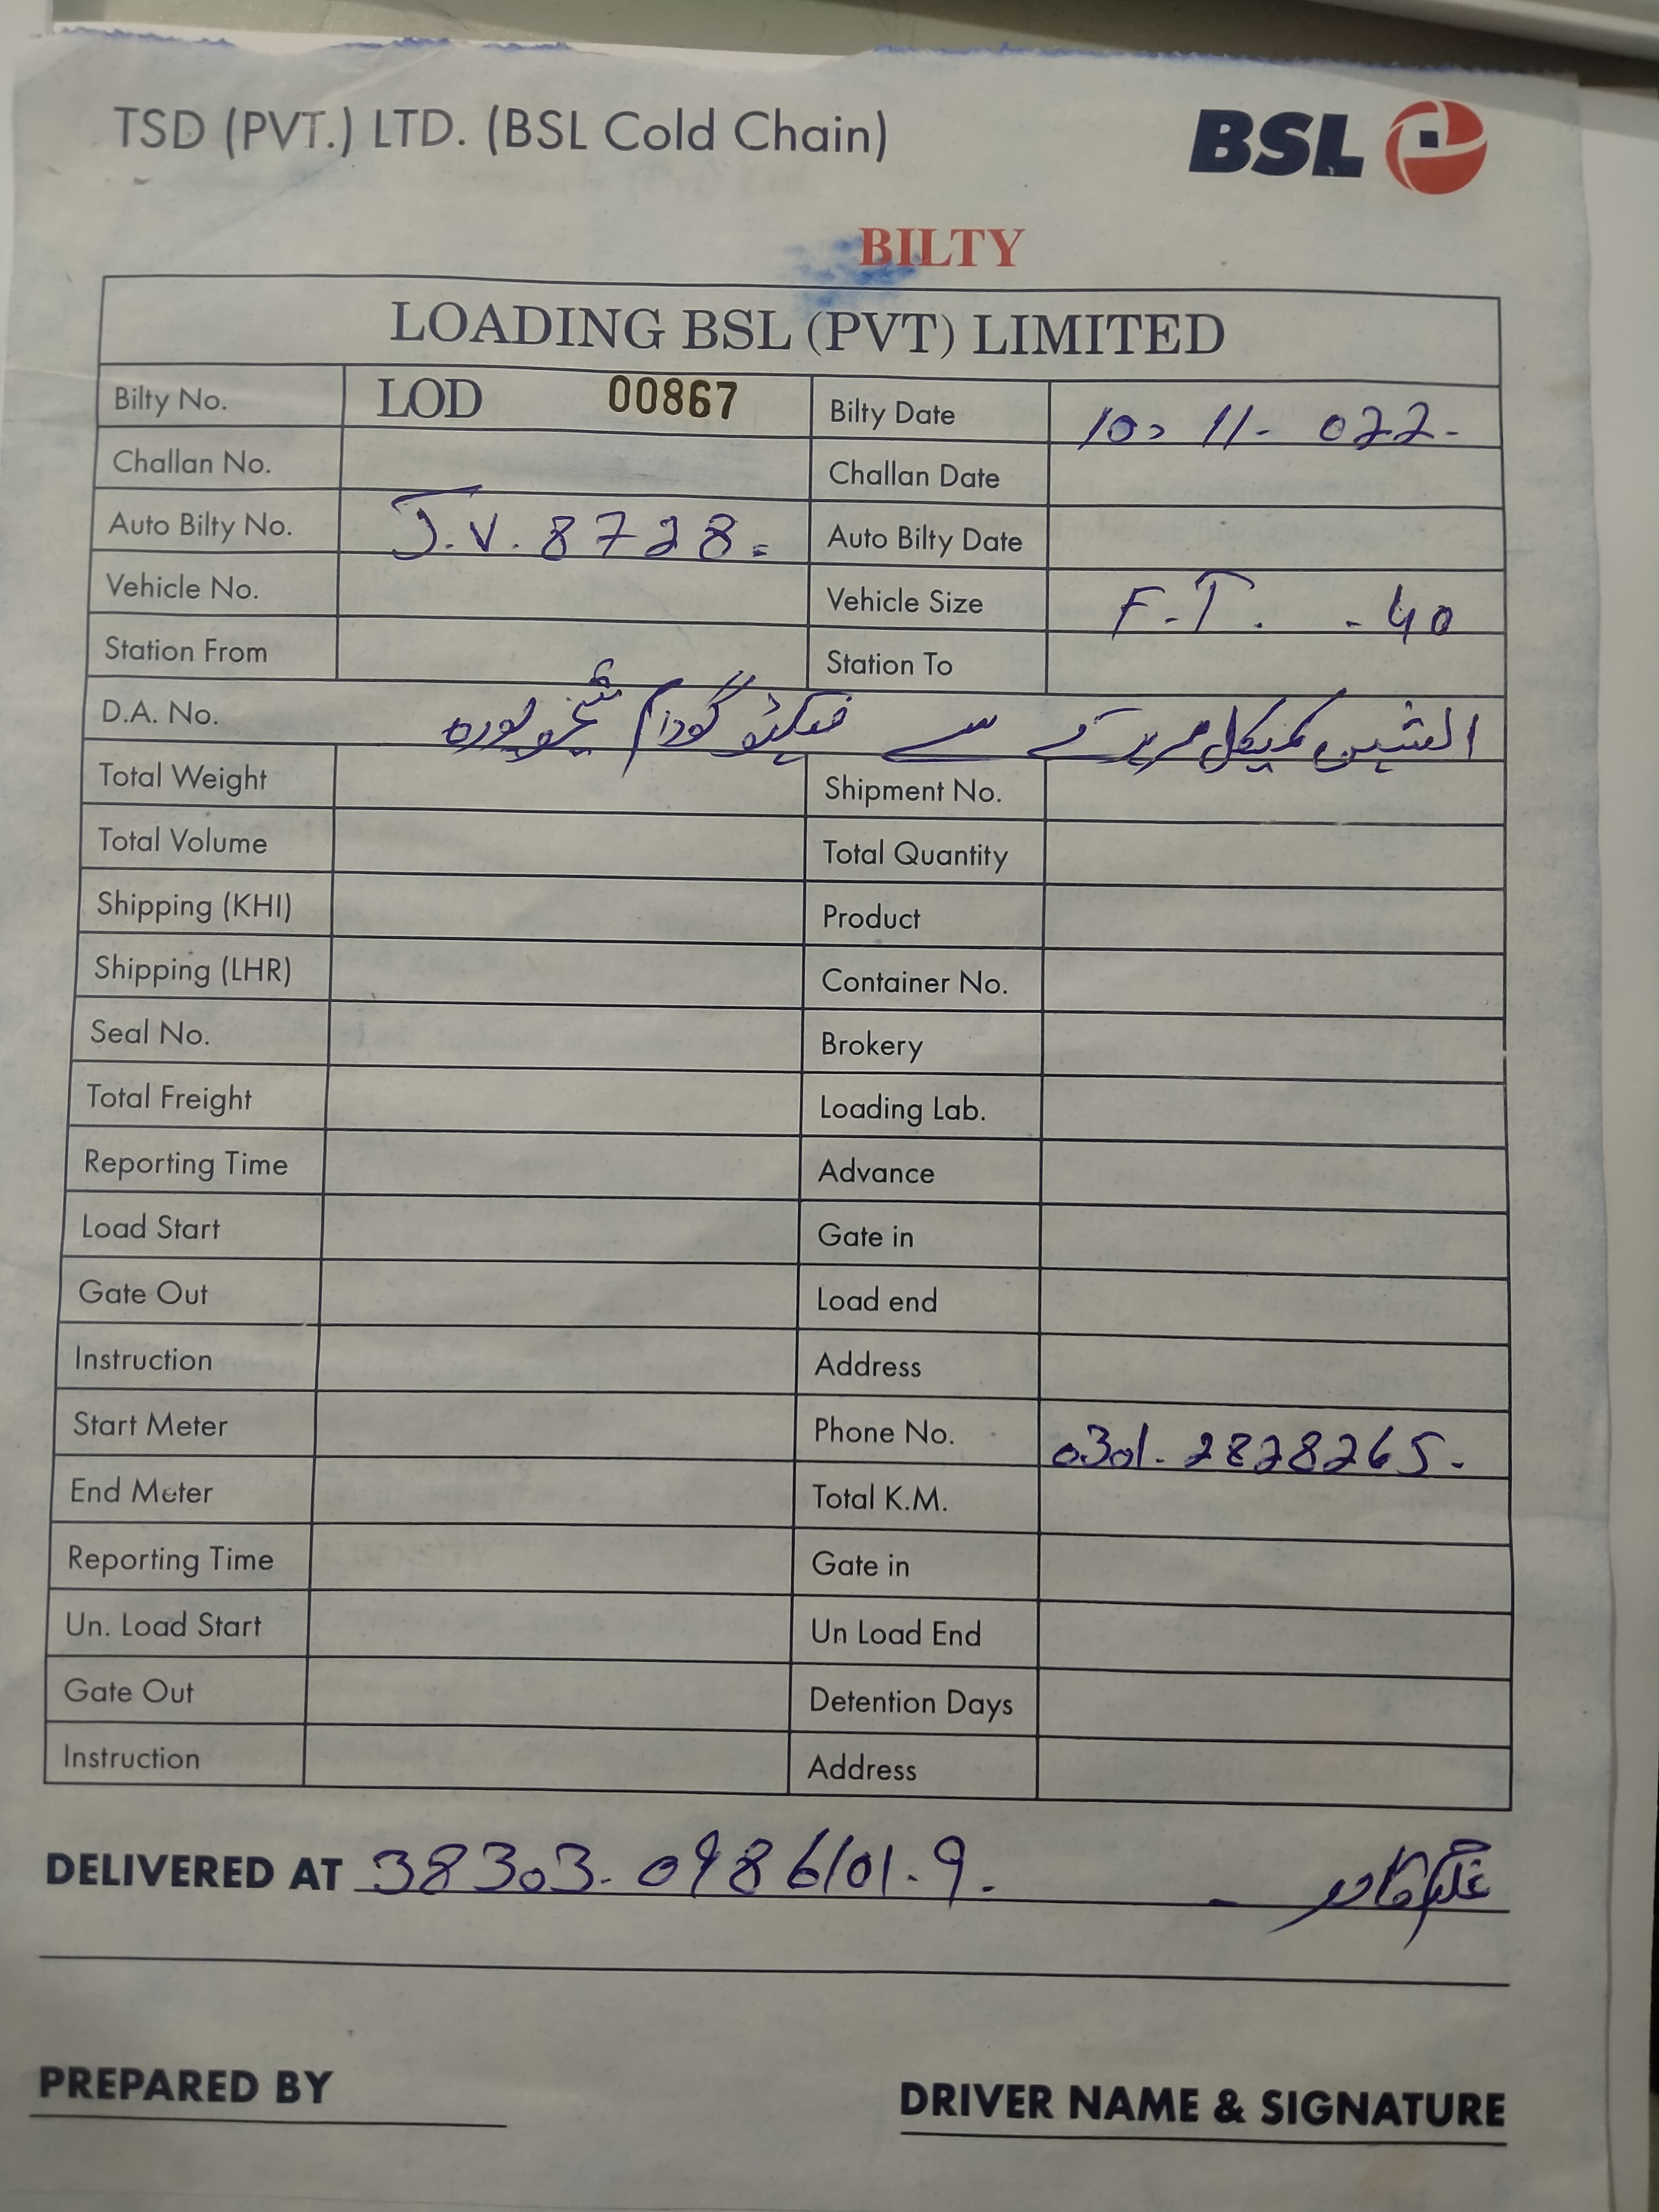 TSD (PVT.) LTD. (BSL Cold Chain) BSL
BILTY
LOADING BSL (PVT) LIMITED
Bilty No. LOD 00867 Bilty Date 10, 11- 022-
Challan No. Challan Date
Auto Bilty No. J.V. 8728. Auto Bilty Date
Vehicle No. Vehicle Size F.T. -40
Station From Station To
D.A. No. کیمیکل سے گودام شیخوپورہ
Total Weight Shipment No.
Total Volume Total Quantity
Shipping (KHI) Product
Shipping (LHR) Container No.
Seal No. Brokery
Total Freight Loading Lab.
Reporting Time Advance
Load Start Gate in
Gate Out Load end
Instruction Address
Start Meter Phone No. 0301-2828265-
End Meter Total K.M.
Reporting Time Gate in
Un. Load Start Un Load End
Gate Out Detention Days
Instruction Address
DELIVERED AT 38303-0986101-9.
PREPARED BY DRIVER NAME & SIGNATURE